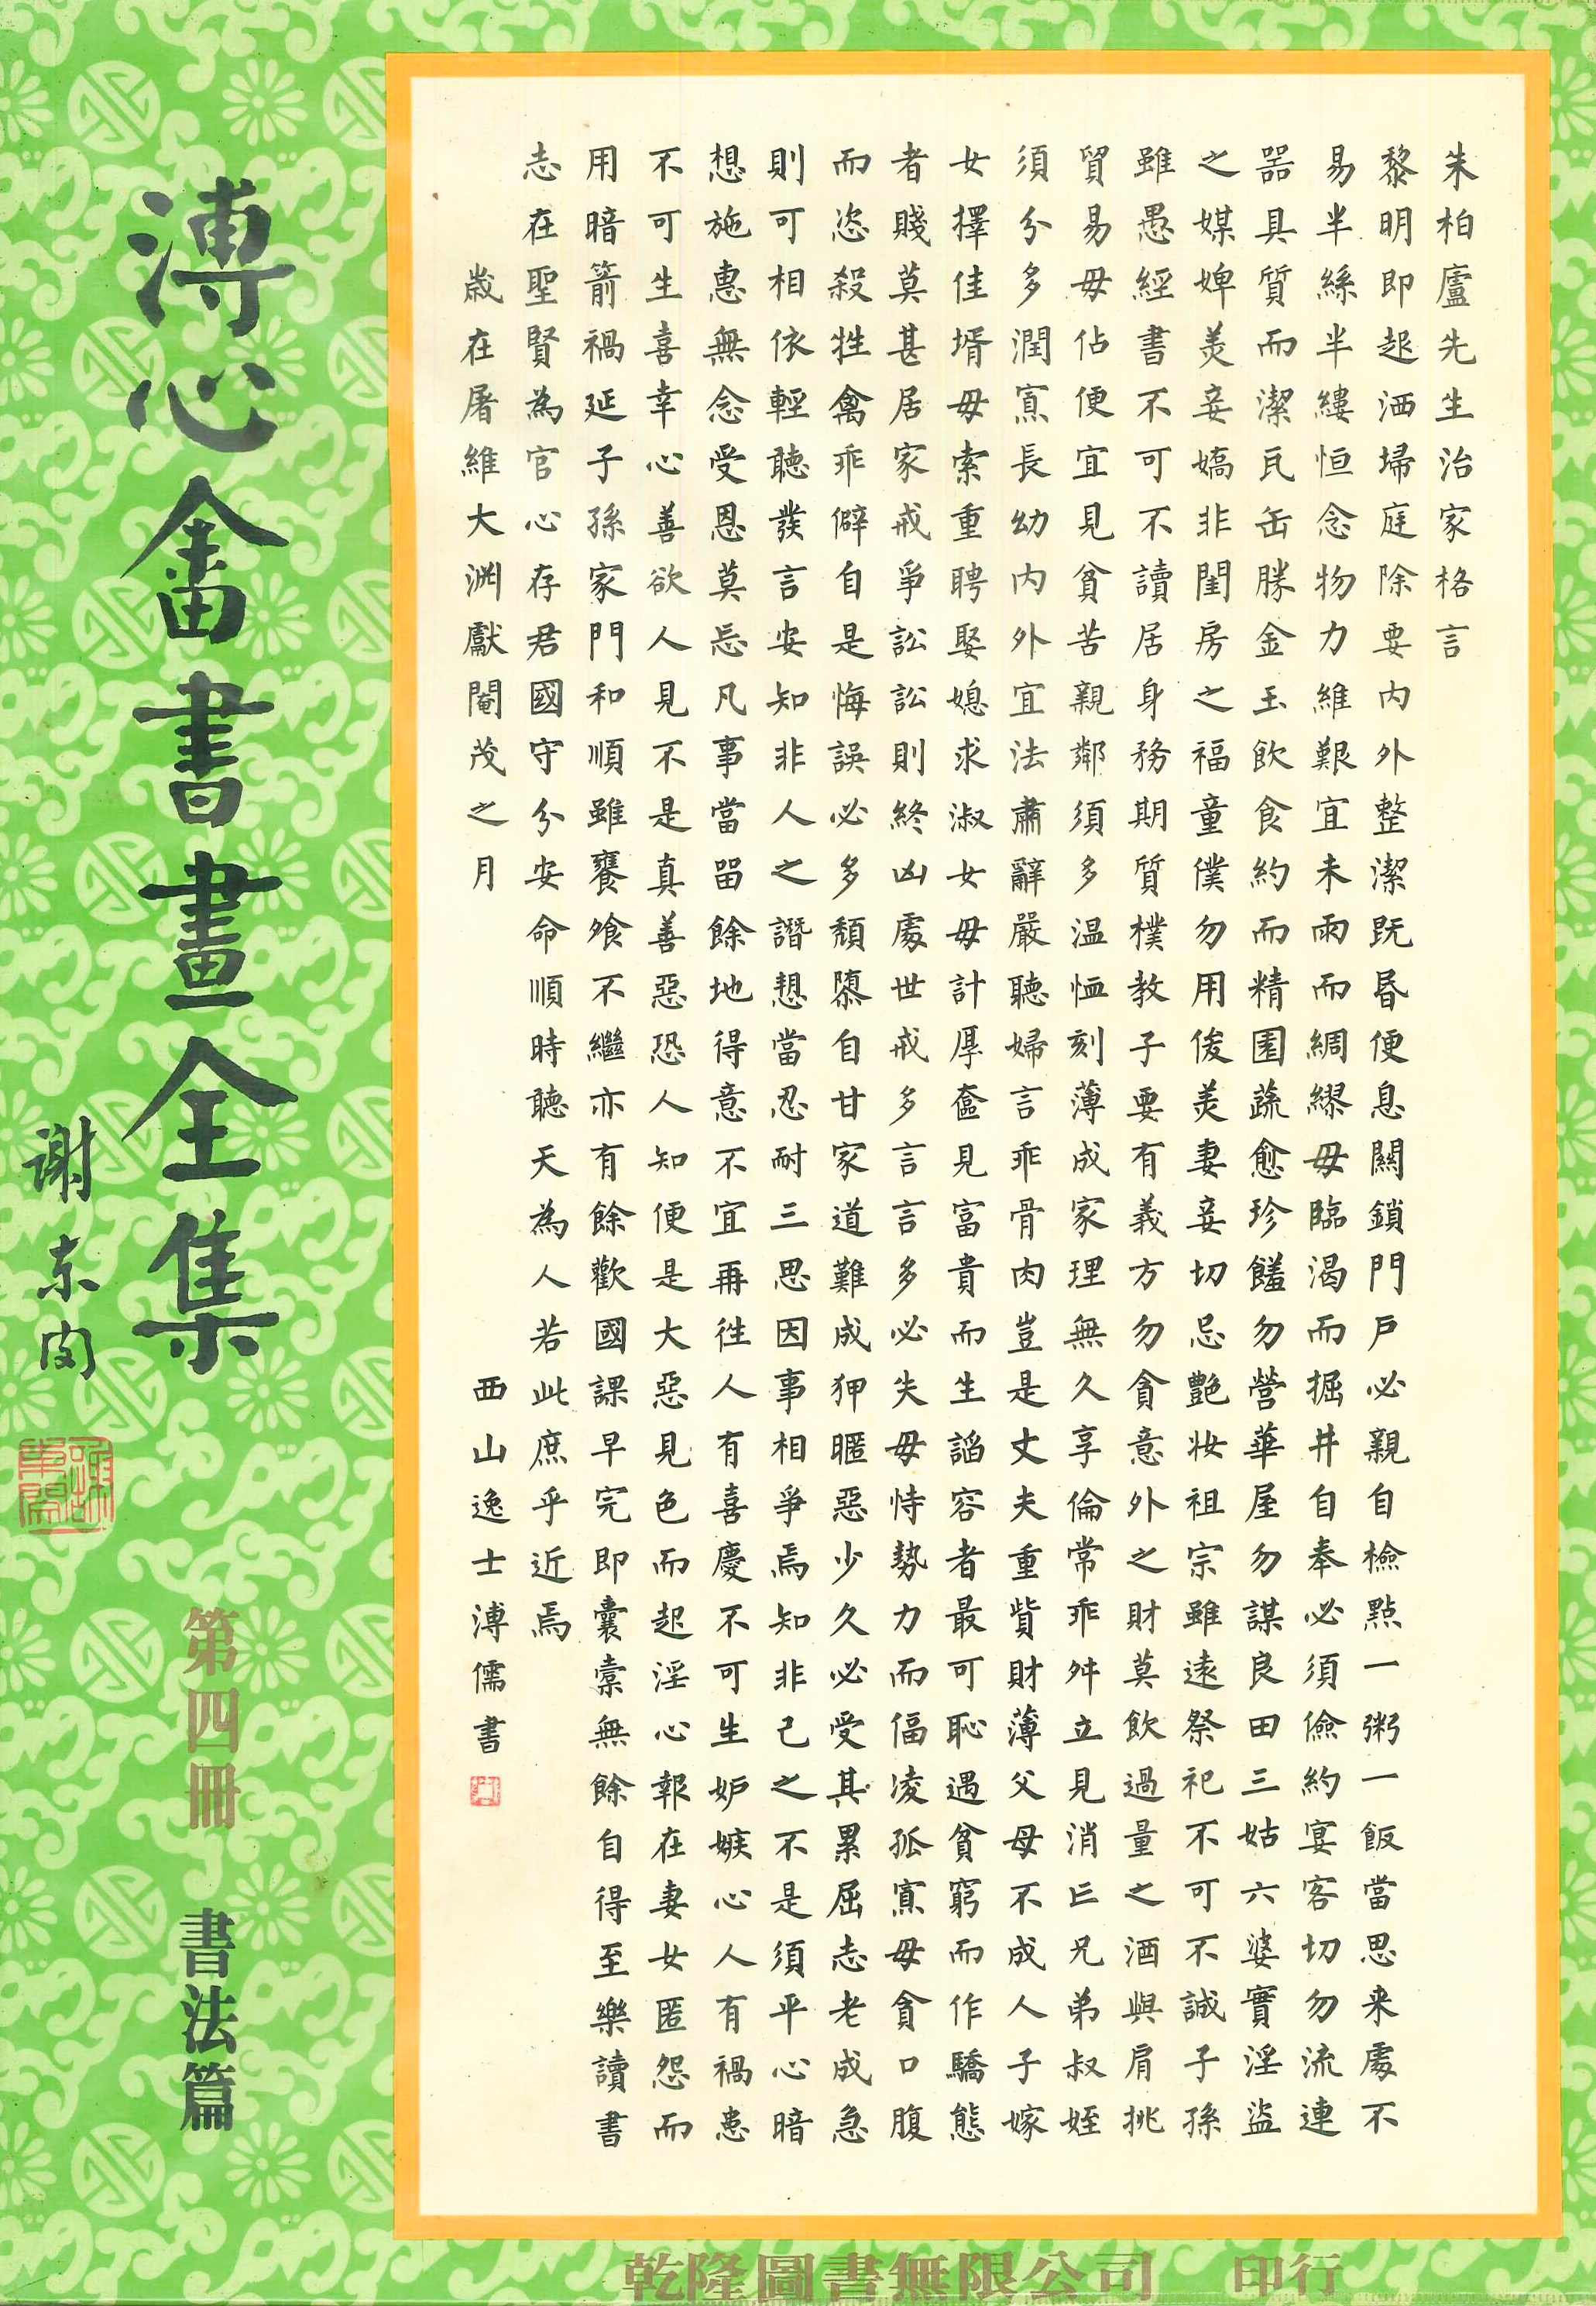 朱柏廬先生治家格言
黎明即起洒埽庭除要内外整潔既昏便息關鎖門戶必親自檢點一粥一飯當思来處不
易半絲半縷恒念物力維艱宜未雨而綢繆毋臨渴而掘井自奉必須儉約宴客切勿流連
器具質而潔瓦缶勝金玉飲食約而精園蔬愈珍饈勿營華屋勿謀良田三姑六婆實淫盜
之媒婢美妾嬌非閨房之福童僕勿用俊美妻妾切忌艷妝祖宗雖遠祭祀不可不誠子孫
雖愚經書不可不讀居身務期質樸教子要有義方勿貪意外之財莫飲過量之酒與肩挑
貿易毋佔便宜見貧苦親鄰須多温恤刻薄成家理無久享倫常乖舛立見消亡兄弟叔姪
須分多潤寡長幼内外宜法肅辭嚴聽婦言乖骨肉豈是丈夫重貲財薄父母不成人子嫁
女擇佳壻毋索重聘娶媳求淑女毋計厚奩見富貴而生諂容者最可恥遇貧窮而作驕態
者賤莫甚居家戒爭訟訟則終凶處世戒多言言多必失毋恃勢力而偪凌孤寡毋貪口腹
而恣殺牲禽乖僻自是悔誤必多頹隳自甘家道難成狎暱惡少久必受其累屈志老成急
則可相依輕聽發言安知非人之譖愬當忍耐三思因事相爭焉知非己之不是須平心暗
想施惠無念受恩莫忘凡事當留餘地得意不宜再往人有喜慶不可生妒嫉心人有禍患
不可生喜幸心善欲人見不是真善惡恐人知便是大惡見色而起淫心報在妻女匿怨而
用暗箭禍延子孫家門和順雖饔飧不繼亦有餘歡國課早完即囊橐無餘自得至樂讀書
志在聖賢為官心存君國守分安命順時聽天為人若此庶乎近焉
歲在屠維大淵獻閹茂之月 西山逸士溥儒書
溥心畬書畫全集
第四冊 書法篇
謝東閔
謝東閔
乾隆圖書無限公司 印行